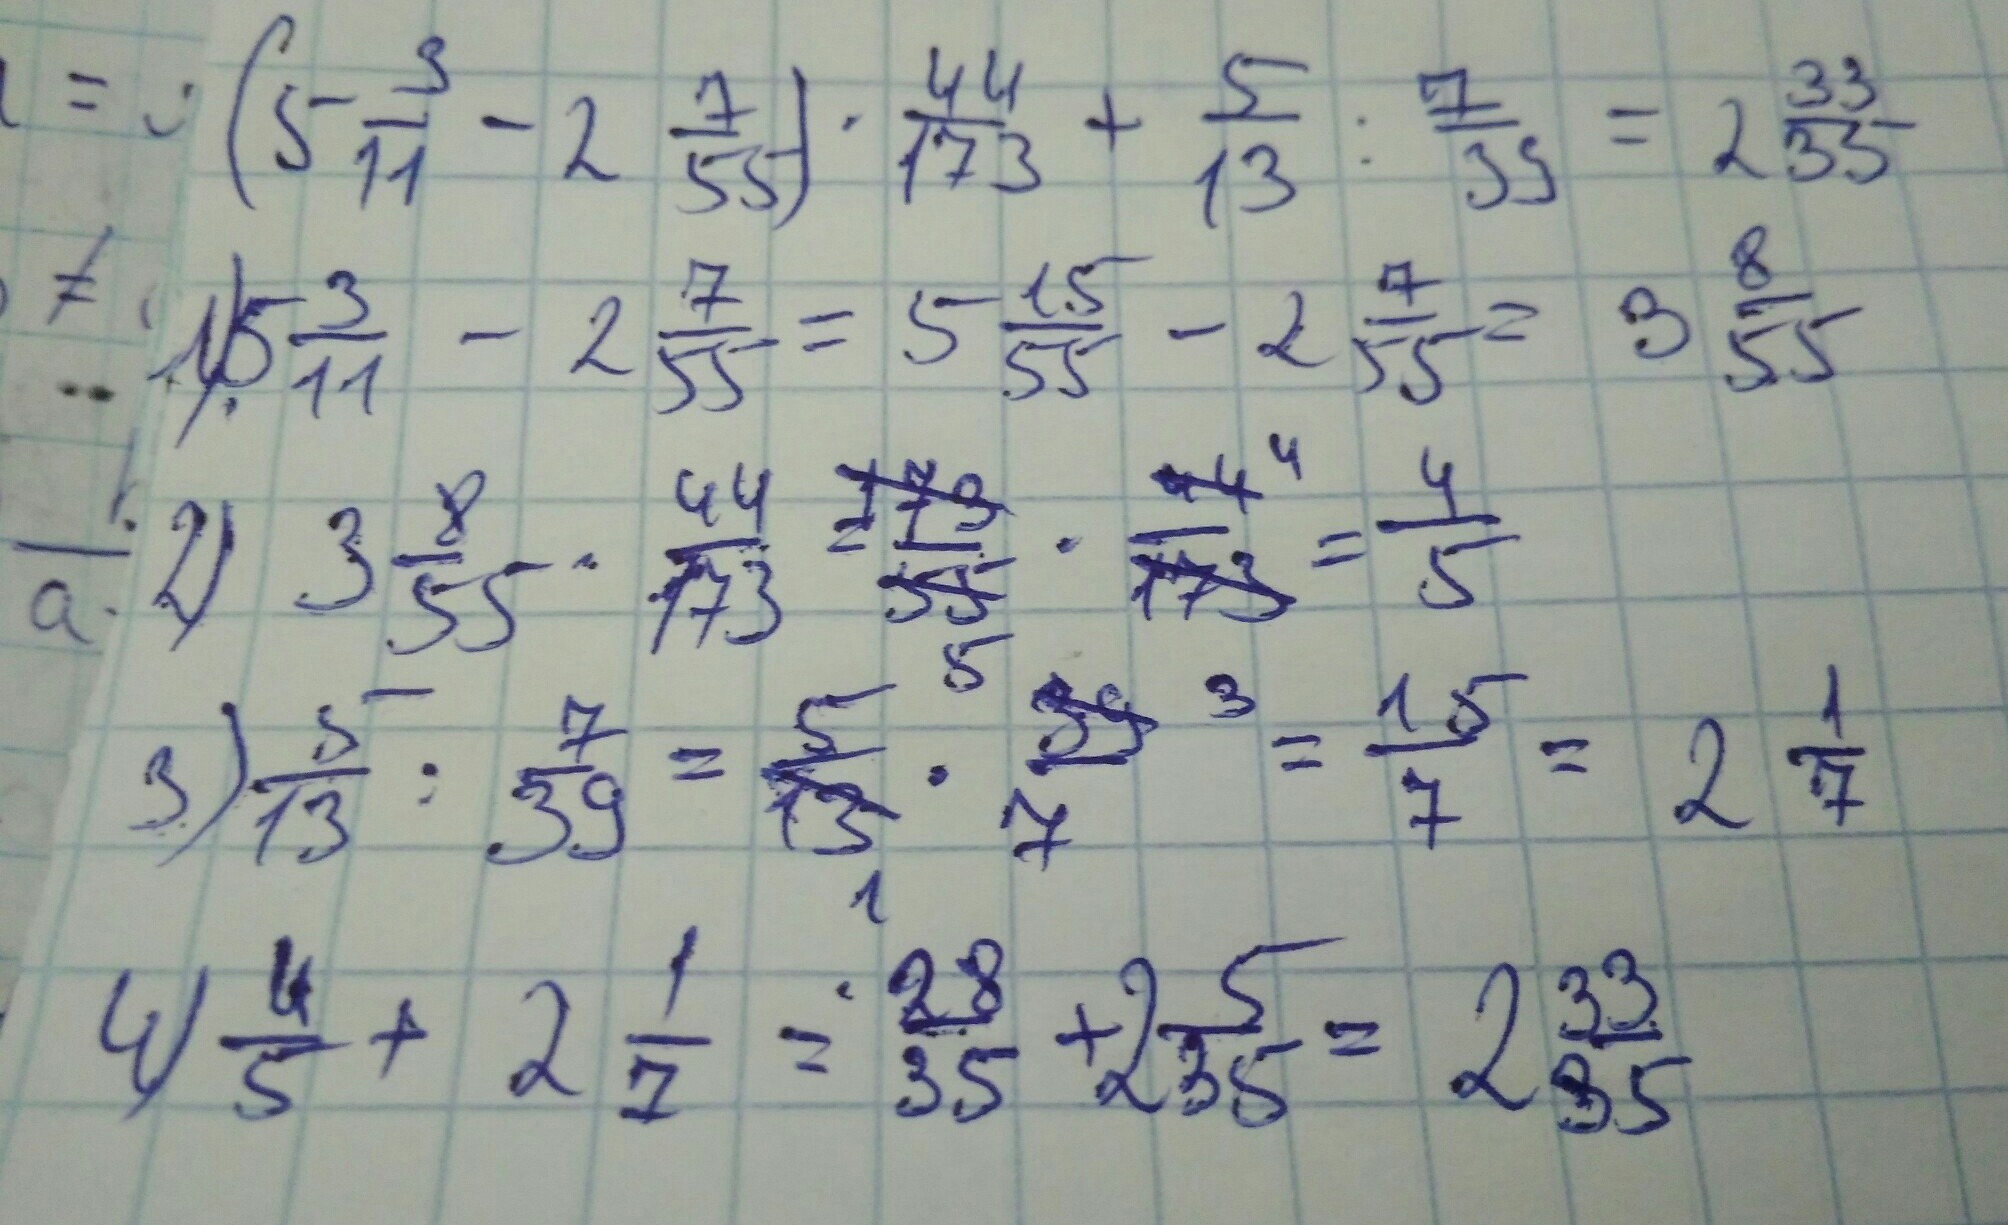 (5 3/11 - 2 7/55) · 44/173 + 5/13 : 7/39 = 2 33/35
1) 5 3/11 - 2 7/55 = 5 15/55 - 2 7/55 = 3 8/55
2) 3 8/55 · 44/173 = 173/55 5 · 44 4/173 = 4/5
3) 5/13 : 7/39 = 5/13 1 · 39 3/7 = 15/7 = 2 1/7
4) 4/5 + 2 1/7 = 28/35 + 2 5/35 = 2 33/35